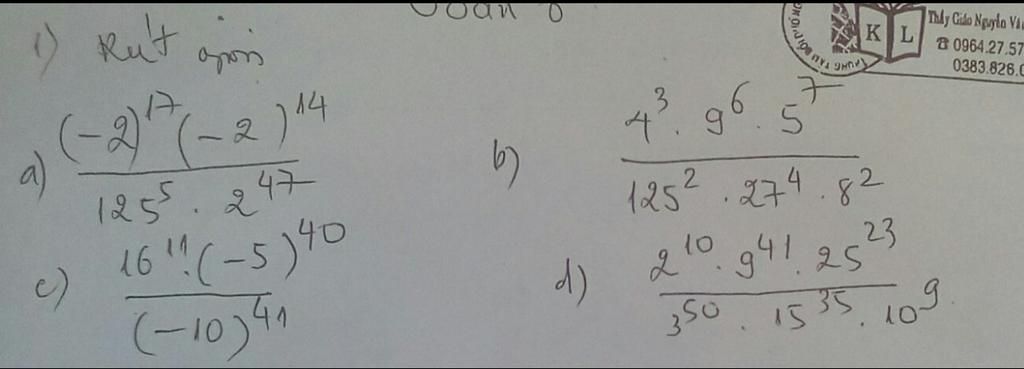 Toán 6
Thầy Giáo Nguyễn Vă
☎ 0964.27.57
0383.826.0
K L
1) Rút gọn
a) \frac{(-2)^{17} (-2)^{14}}{125^5 . 2^{47}}
b) \frac{4^3 . 9^6 . 5^7}{125^2 . 27^4 . 8^2}
c) \frac{16^{11} . (-5)^{40}}{(-10)^{41}}
d) \frac{2^{10} . 9^{41} . 25^{23}}{3^{50} . 15^{35} . 10^9}